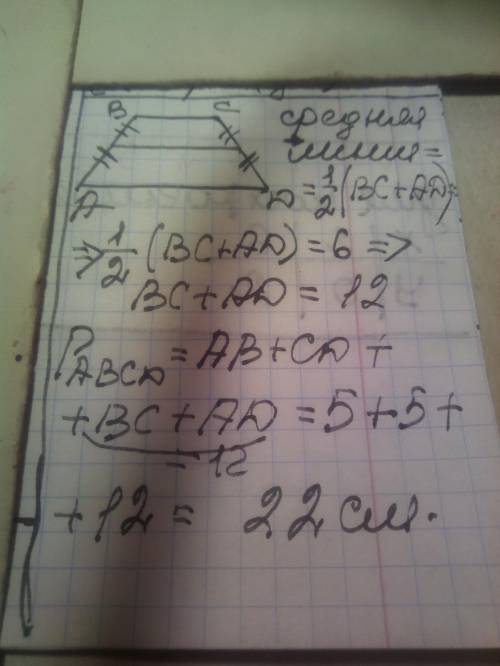 B C
A D
средняя
линия =
= 1/2 (BC+AD) =
=> 1/2 (BC+AD) = 6 =>
BC+AD = 12
P_ABCD = AB+CD +
+ BC + AD = 5+5+
= 12
+ 12 = 22 см.